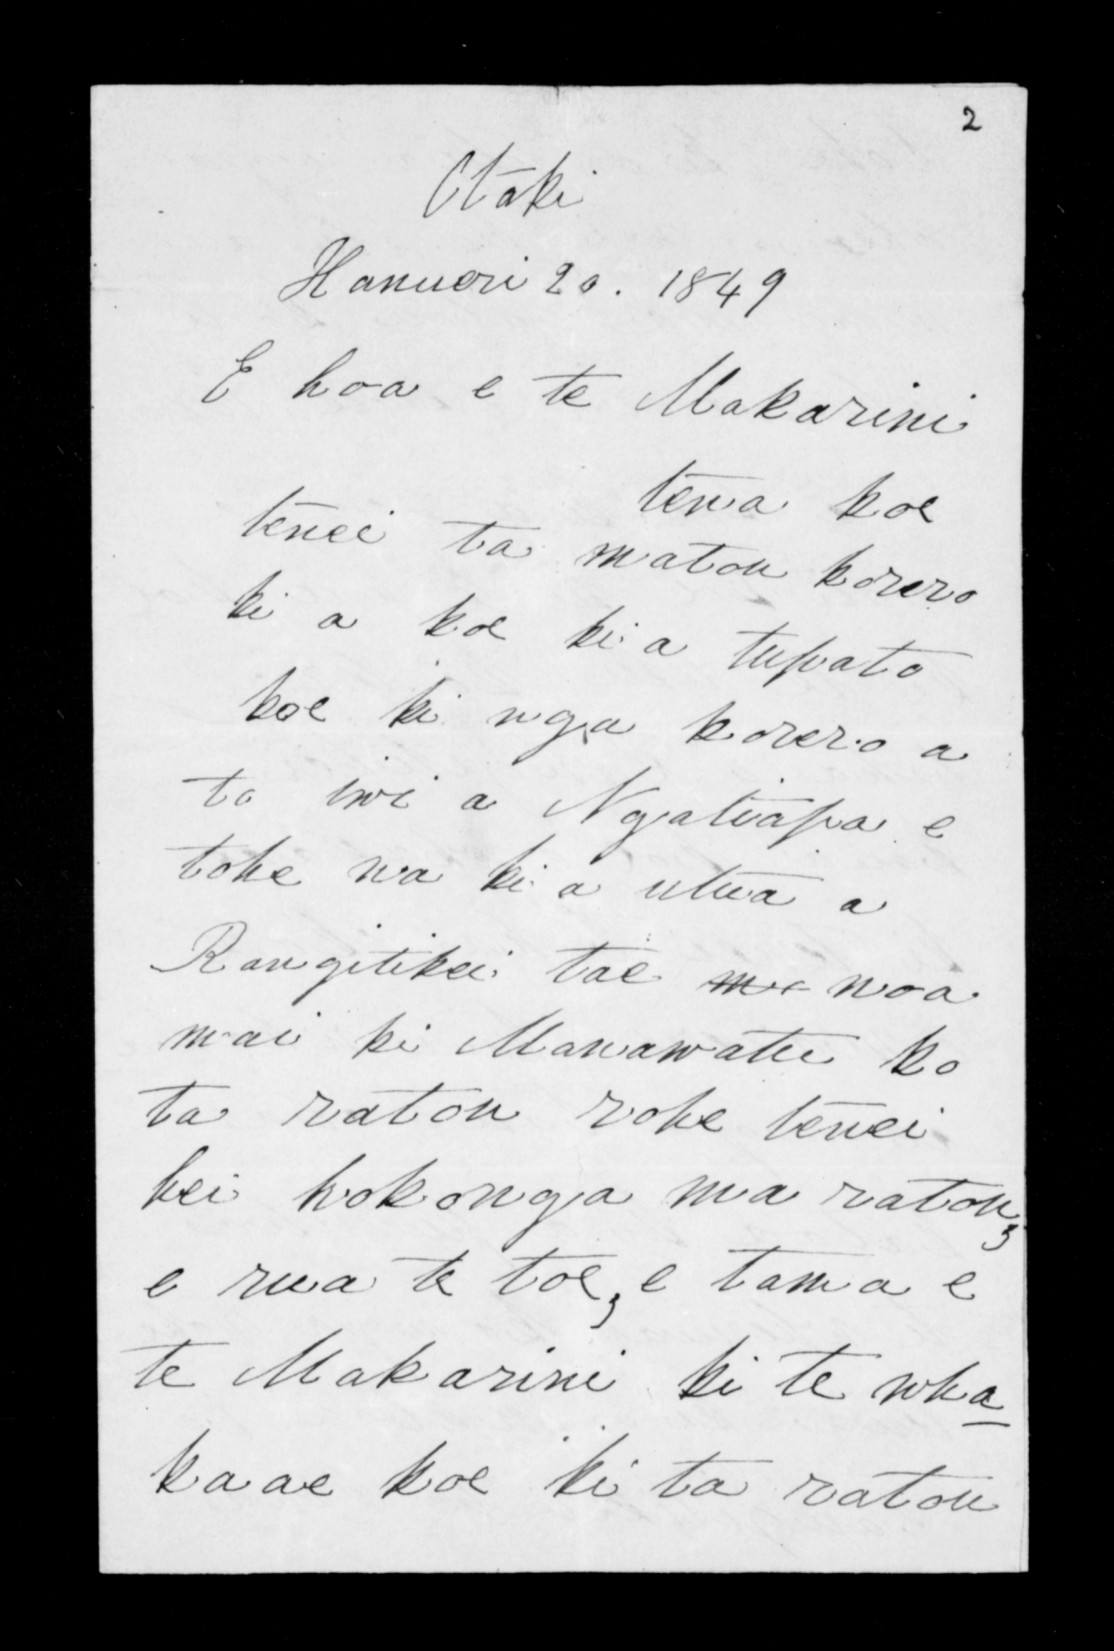 2
Otaki
Hanueri 20. 1849
E hoa e te Makarini
tena koe
tenei ta matou korero
ki a koe kia tupato
koe ki nga korero a
to iwi a Ngatiapa e
tohe na kia utua a
Rangitikei tae me noa
mai ki Manawatu ko
ta ratou rohe tenei
hei hokonga ma ratou,
e rua te toe, e tama e
te Makarini ki te wha
kaae koe ki ta ratou